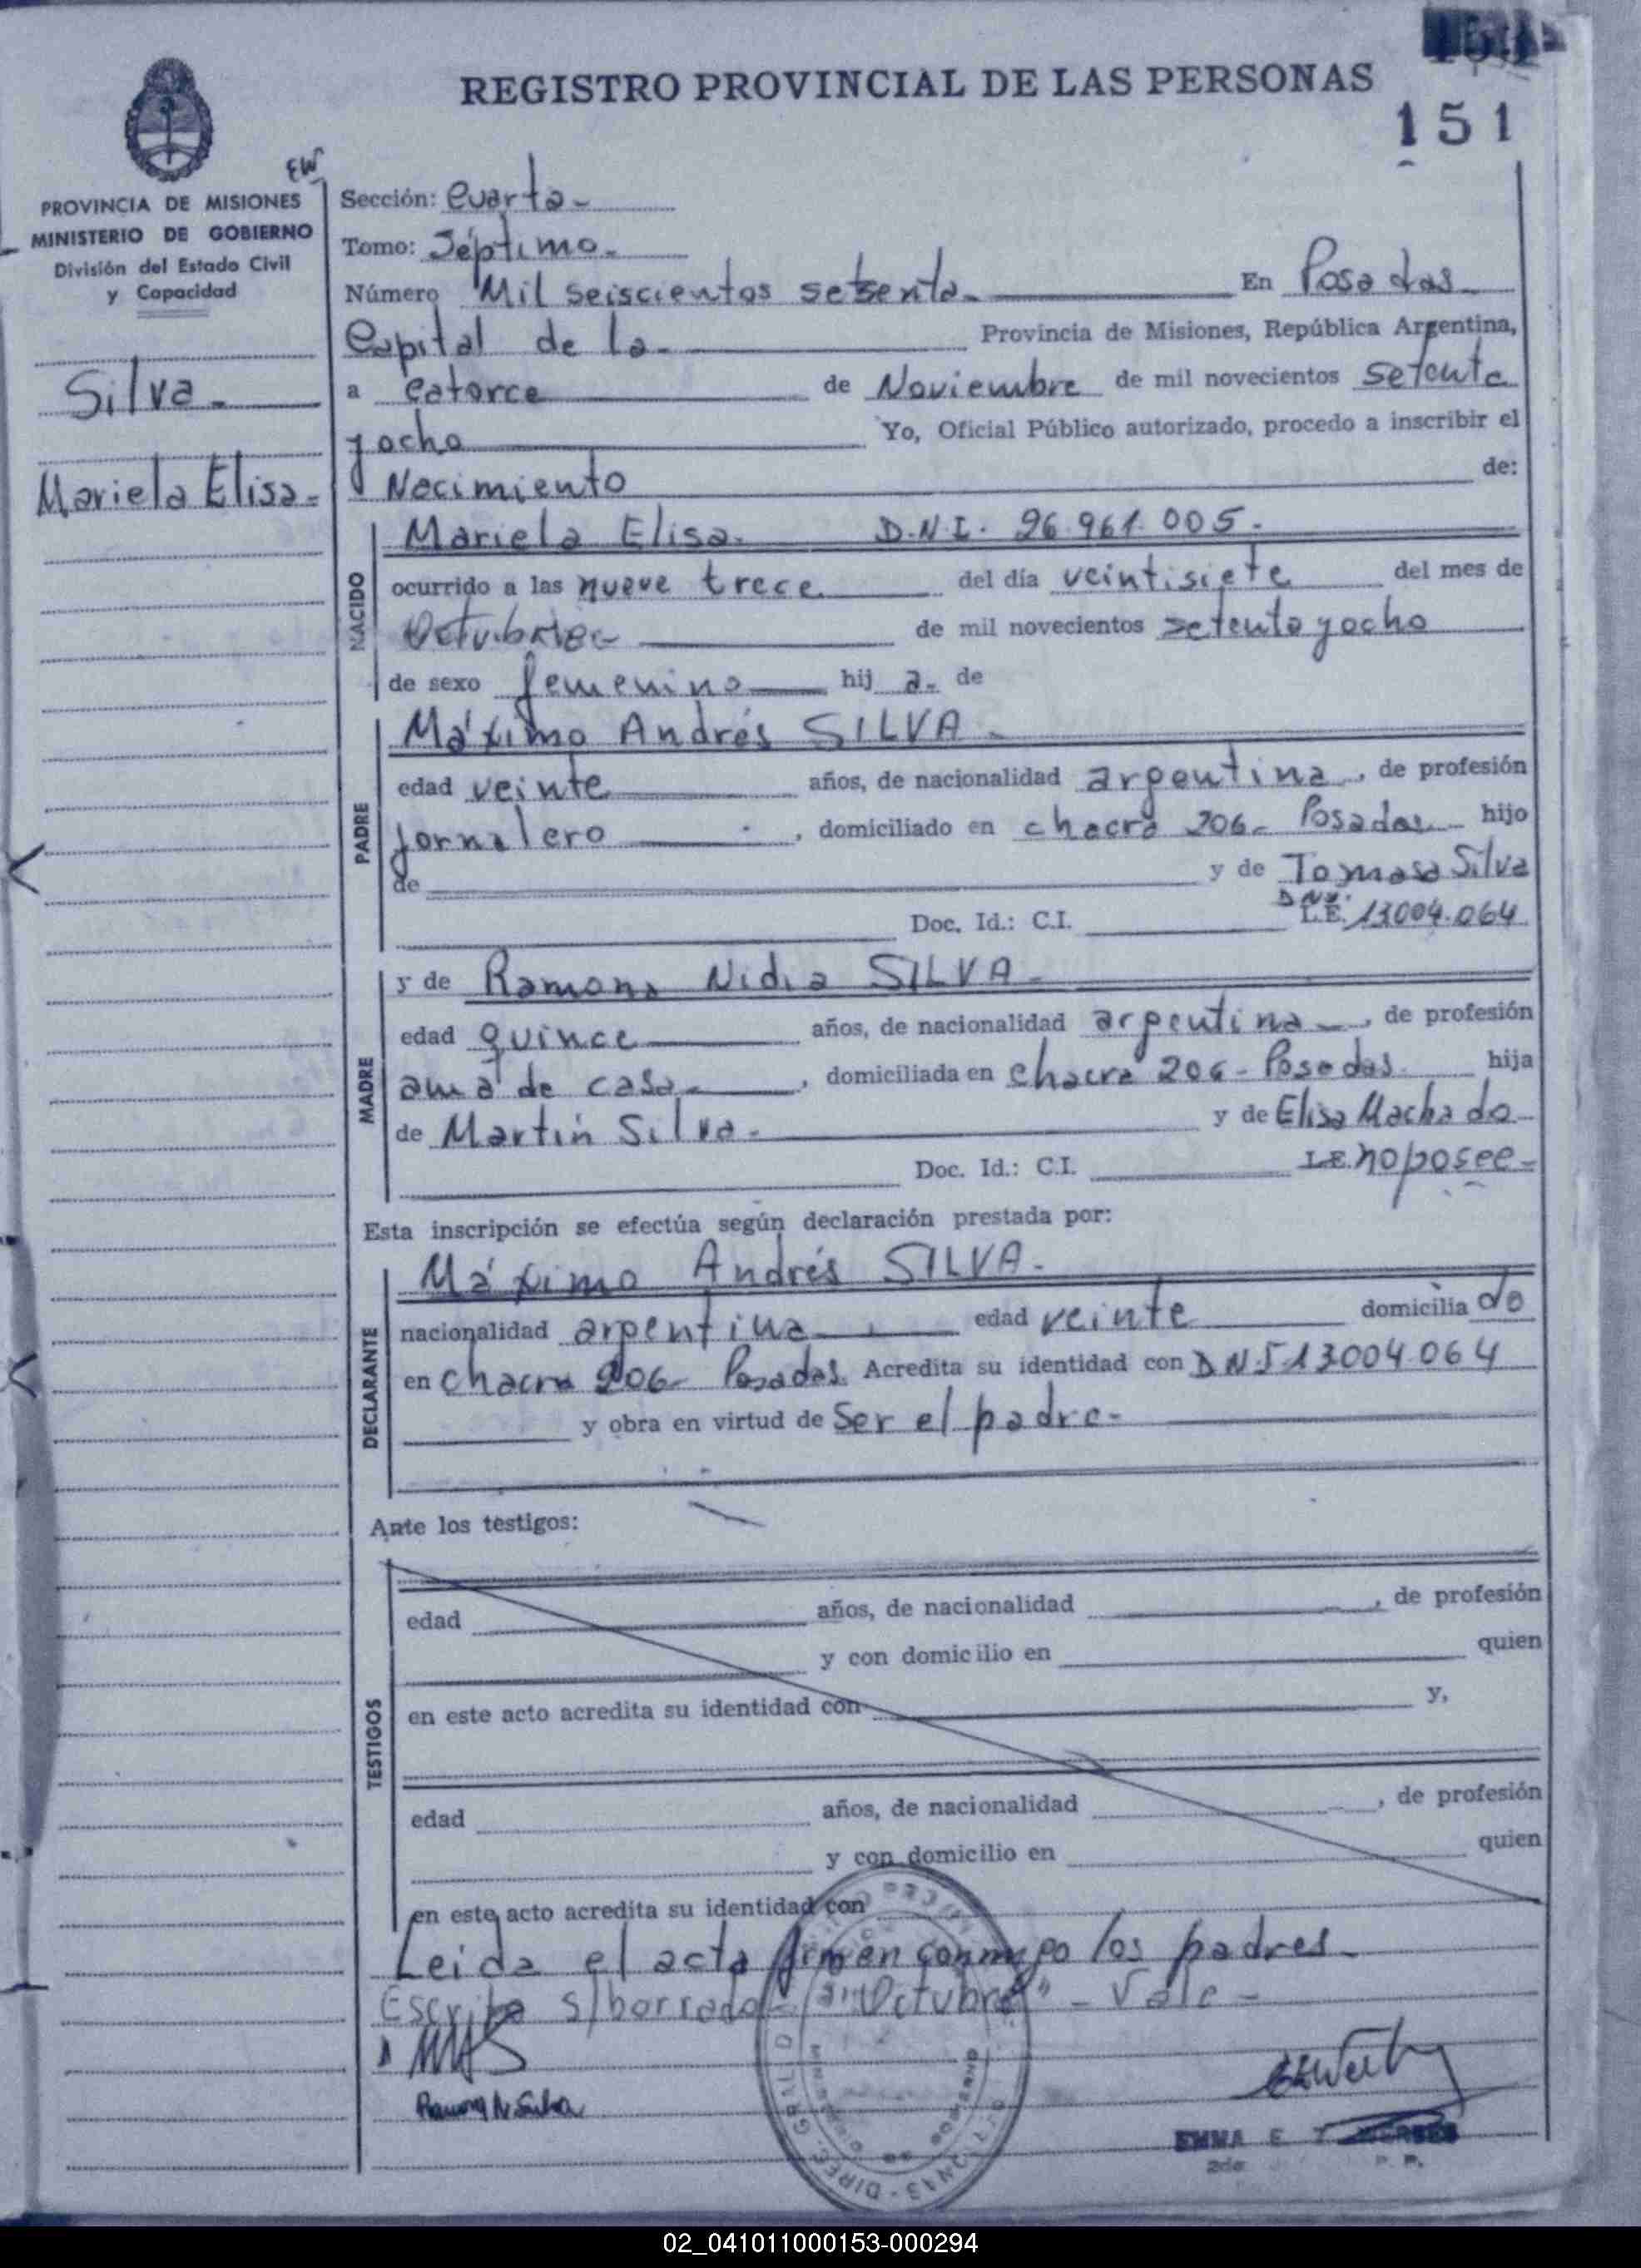 REGISTRO PROVINCIAL DE LAS PERSONAS
151
EW
PROVINCIA DE MISIONES
MINISTERIO DE GOBIERNO
División del Estado Civil
y Capacidad
Silva-
Mariela Elisa-
Sección: Cuarta-
Tomo: Séptimo-
Número Mil seiscientos setenta- En Posadas-
Capital de la- Provincia de Misiones, República Argentina,
a Catorce de Noviembre de mil novecientos setenta
y ocho Yo, Oficial Público autorizado, procedo a inscribir el
Nacimiento de:
NACIDO
Mariela Elisa. D.N.I. 26.961.005.
ocurrido a las nueve trece del día veintisiete del mes de
Octubre- de mil novecientos setenta y ocho
de sexo femenino hij a. de
PADRE
Máximo Andrés SILVA-
edad veinte años, de nacionalidad argentina, de profesión
jornalero, domiciliado en chacra 206- Posadas- hijo
de y de Tomasa Silva
Doc. Id.: C.I. DNI. L.E. 13004.064
MADRE
y de Ramona Nidia SILVA-
edad quince años, de nacionalidad argentina-, de profesión
ama de casa-, domiciliada en Chacra 206- Posadas. hija
de Martín Silva- y de Elisa Machado-
Doc. Id.: C.I. L.E. no posee-
Esta inscripción se efectúa según declaración prestada por:
DECLARANTE
Máximo Andrés SILVA-
nacionalidad argentina edad veinte domicilia do
en chacra 206- Posadas. Acredita su identidad con DNI 13004.064
y obra en virtud de Ser el padre-
Ante los testigos:
TESTIGOS
edad años, de nacionalidad , de profesión
y con domicilio en quien
en este acto acredita su identidad con y,
edad años, de nacionalidad , de profesión
y con domicilio en quien
en este acto acredita su identidad con
Leida el acta firman conmigo los padres-
Escrito s/borrado: "Octubre" - Vale-
MAS
Ramona N Silva
EMMA E
2da
02_041011000153-000294